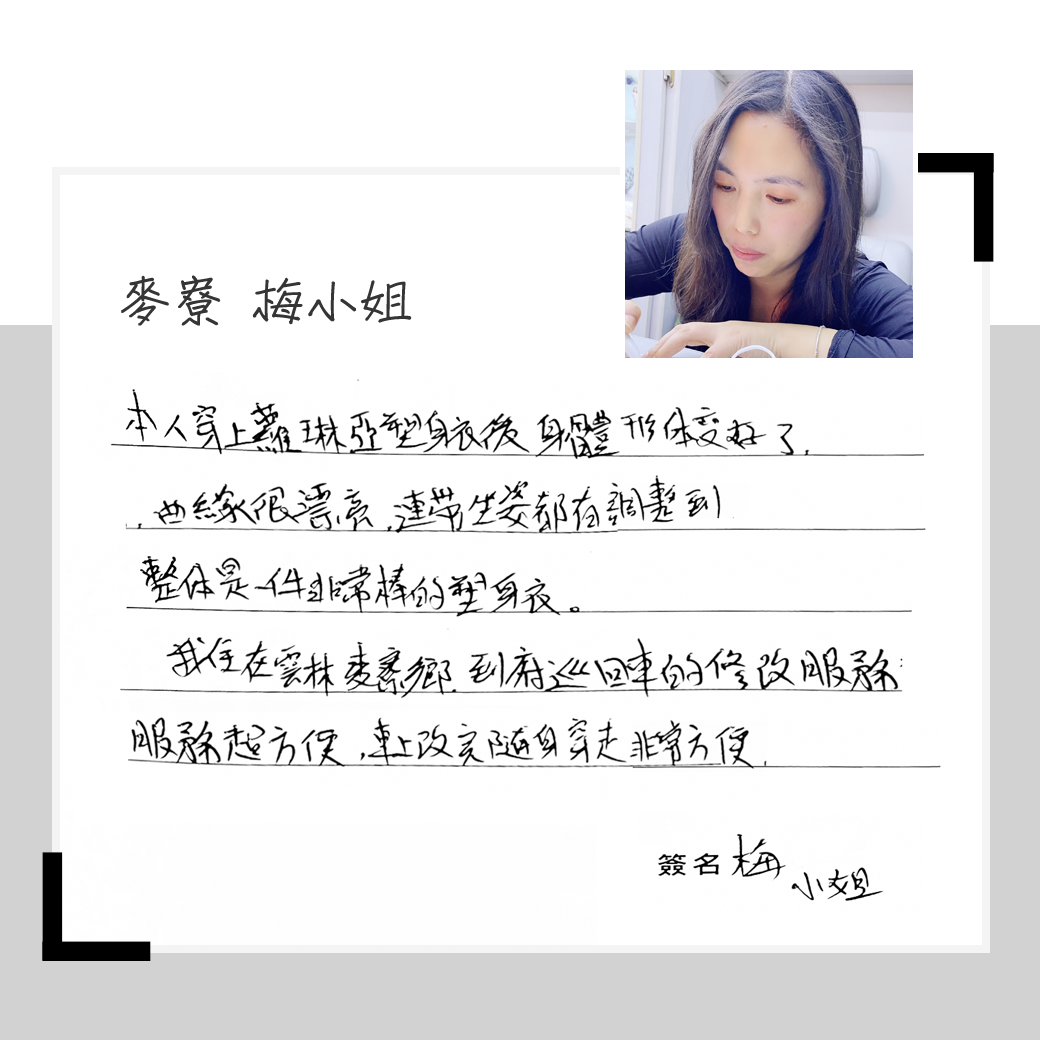 麥寮 梅小姐
本人穿上蘿琳亞塑身衣後身體形体變好了,
,曲線很漂亮,連帶坐姿都有調整到
整体是一件非常棒的塑身衣。
我住在雲林麥寮鄉.到府巡回車的修改服務
服務超方便,車上改完隨身穿走非常方便,
簽名 梅
小姐